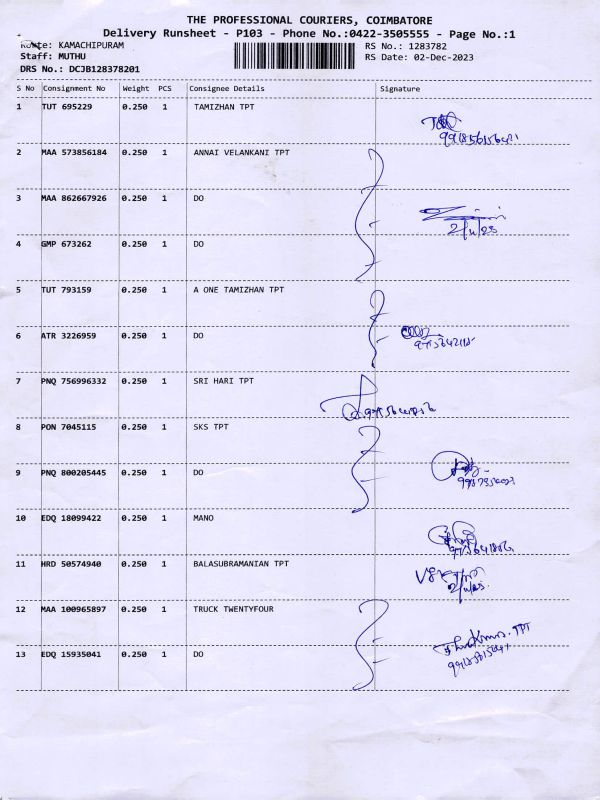 THE PROFESSIONAL COURIERS, COIMBATORE
Delivery Runsheet - P103 - Phone No.:0422-3505555 - Page No.:1
Route: KAMACHIPURAM RS No.: 1283782
Staff: MUTHU RS Date: 02-Dec-2023
DRS No.: DCJB128378201
S No Consignment No Weight PCS Consignee Details Signature
1 TUT 695229 0.250 1 TAMIZHAN TPT
2 MAA 573856184 0.250 1 ANNAI VELANKANI TPT
3 MAA 862667926 0.250 1 DO
4 GMP 673262 0.250 1 DO
5 TUT 793159 0.250 1 A ONE TAMIZHAN TPT
6 ATR 3226959 0.250 1 DO
7 PNQ 756996332 0.250 1 SRI HARI TPT
8 PON 7045115 0.250 1 SKS TPT
9 PNQ 800205445 0.250 1 DO
10 EDQ 18099422 0.250 1 MANO
11 HRD 50574940 0.250 1 BALASUBRAMANIAN TPT
12 MAA 100965897 0.250 1 TRUCK TWENTYFOUR
TPT
13 EDQ 15935041 0.250 1 DO